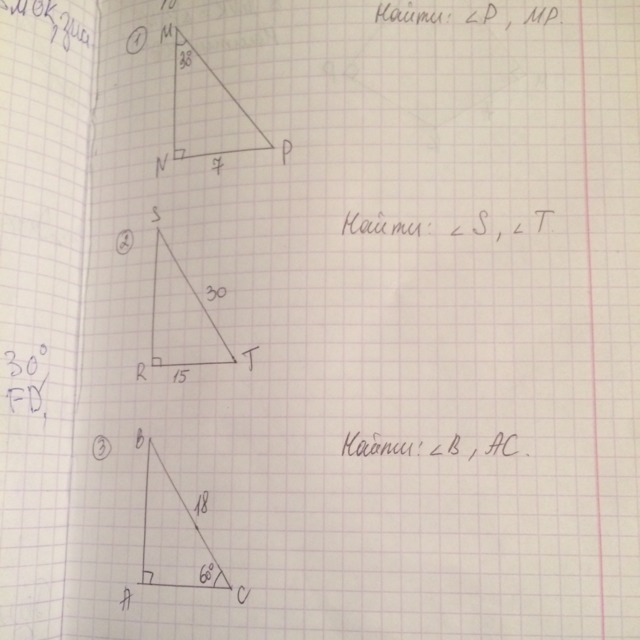 Найти: ∠P, MP.
① M
38
N 7 P
S
② Найти: ∠S, ∠T
30
R 15 T
30°
FD,
③ B Найти: ∠B, AC.
18
60°
A C